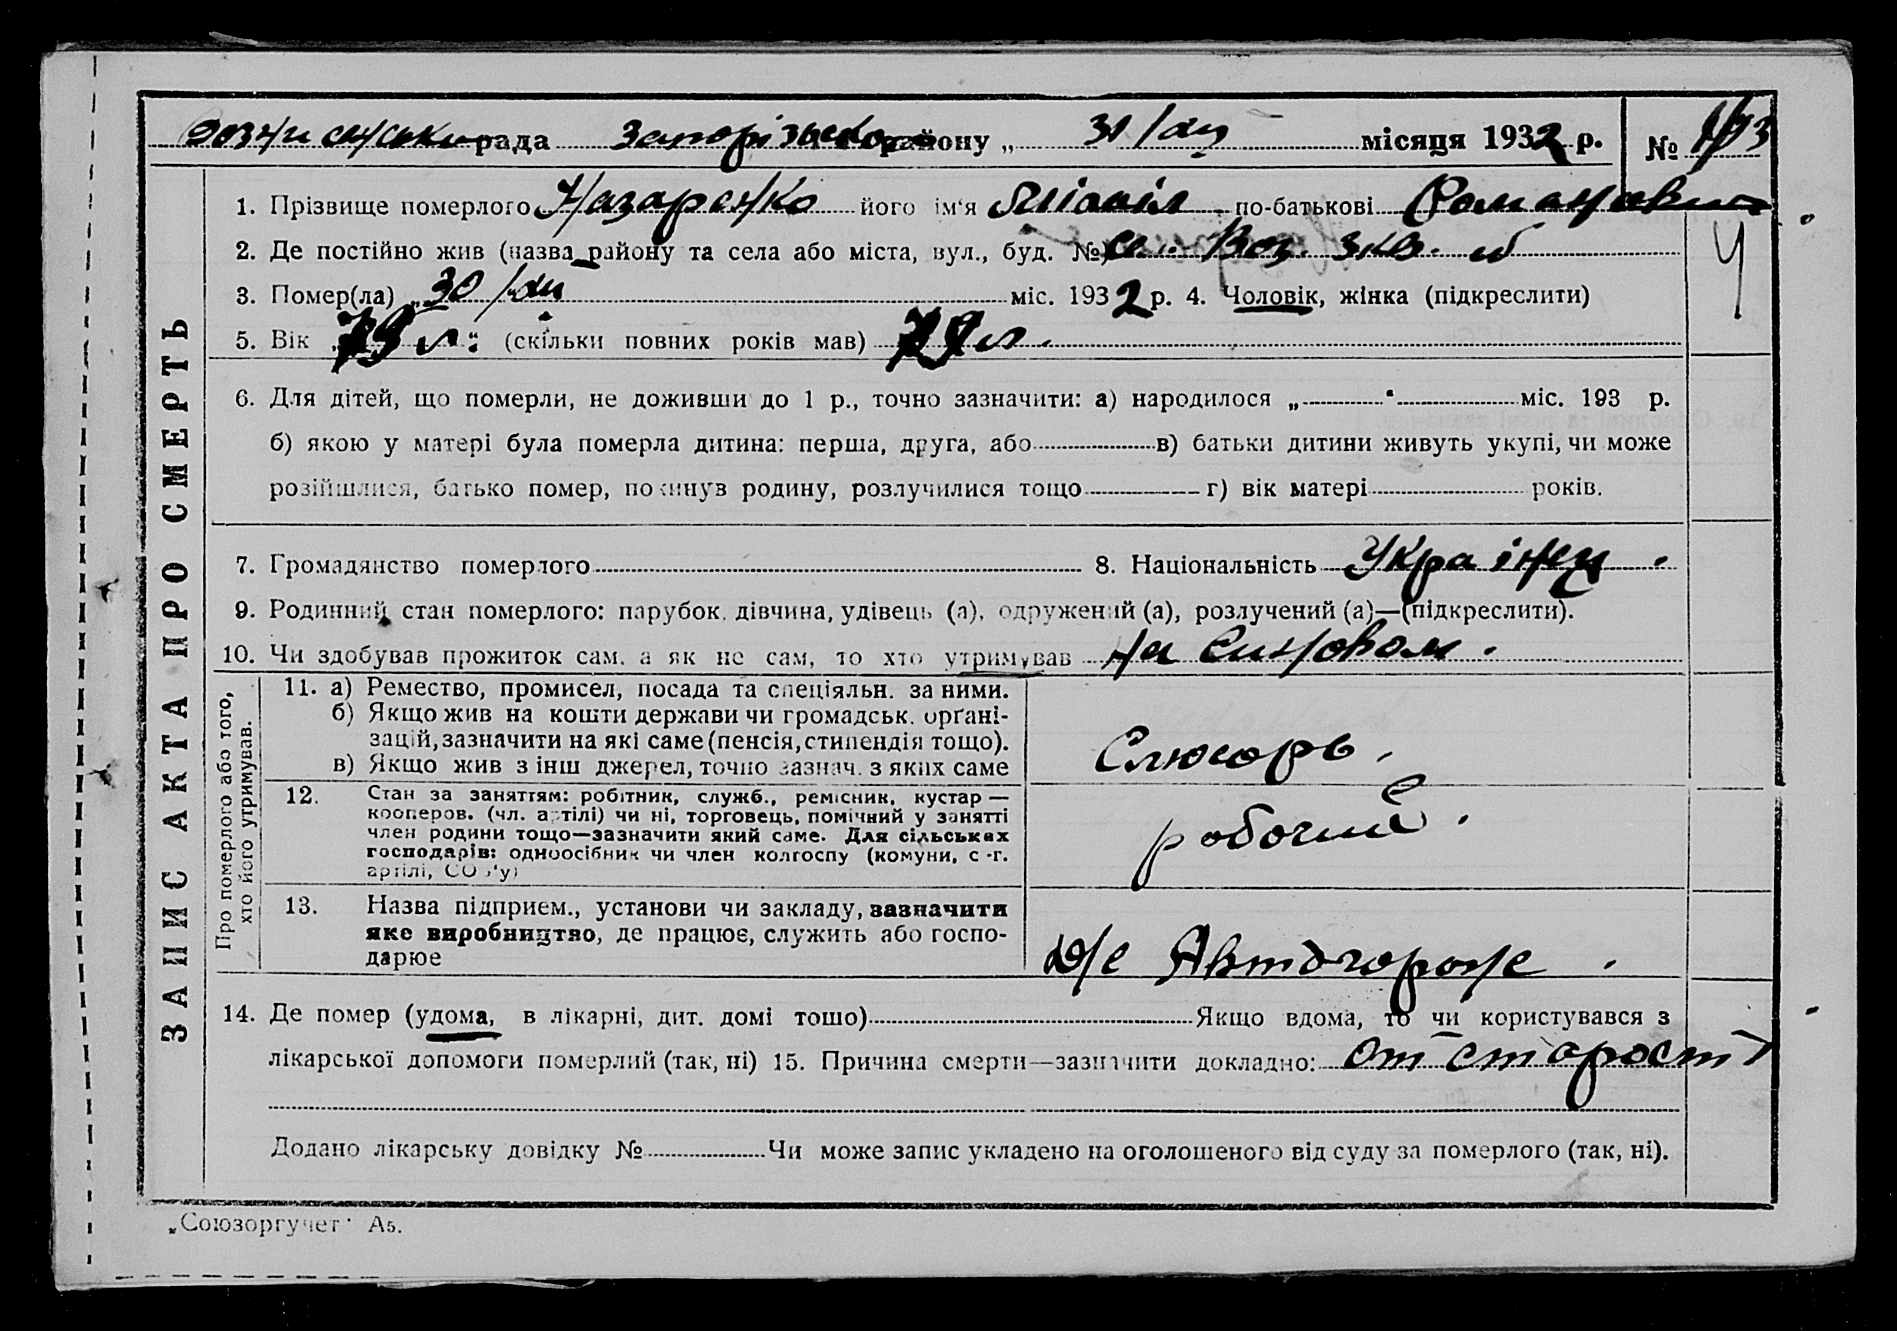 рада Запорізького району „ 31/XII місяця 1932 р. №
1. Прізвище померлого Назаренко його ім'я по-батькові Романович
2. Де постійно жив (назва району та села або міста, вул., буд. №) с. Воз.
3. Помер(ла) „ 30/XII міс. 1932 р. 4. Чоловік, жінка (підкреслити)
5. Вік л. (скільки повних років мав) л.
6. Для дітей, що померли, не доживши до 1 р., точно зазначити: а) народилося „ " міс. 193 р.
б) якою у матері була померла дитина: перша, друга, або в) батьки дитини живуть укупі, чи може
розійшлися, батько помер, покинув родину, розлучилися тощо г) вік матері років.
7. Громадянство померлого 8. Національність Українец.
9. Родинний стан померлого: парубок, дівчина, удівець (а), одружений (а), розлучений (а)—(підкреслити).
10. Чи здобував прожиток сам, а як не сам, то хто утримував на Синовом.
11. а) Ремество, промисел, посада та спеціяльн. за ними.
б) Якщо жив на кошти держави чи громадськ. орґані-
зацій, зазначити на які саме (пенсія, стипендія тощо).
в) Якщо жив з інш джерел, точно зазнач. з яких саме
Слюсарь.
12. Стан за заняттям: робітник, служб., ремісник, кустар —
кооперов. (чл. артілі) чи ні, торговець, помічний у занятті
член родини тощо—зазначити який саме. Для сільських
господарів: одноосібник чи член колгоспу (комуни, с.-г.
артілі, СОЗ'у)
рабочий.
13. Назва підприєм., установи чи закладу, зазначити
яке виробництво, де працює, служить або госпо-
дарюе
14. Де помер (удома, в лікарні, дит. домі тошо) Якщо вдома, то чи користувався з
лікарської допомоги померлий (так, ні) 15. Причина смерти—зазначити докладно: от старости
Додано лікарську довідку № Чи може запис укладено на оголошеного від суду за померлого (так, ні).
ЗАПИС АКТА ПРО СМЕРТЬ
Про померлого або того,
хто його утримував.
„Союзоргучет" А5.